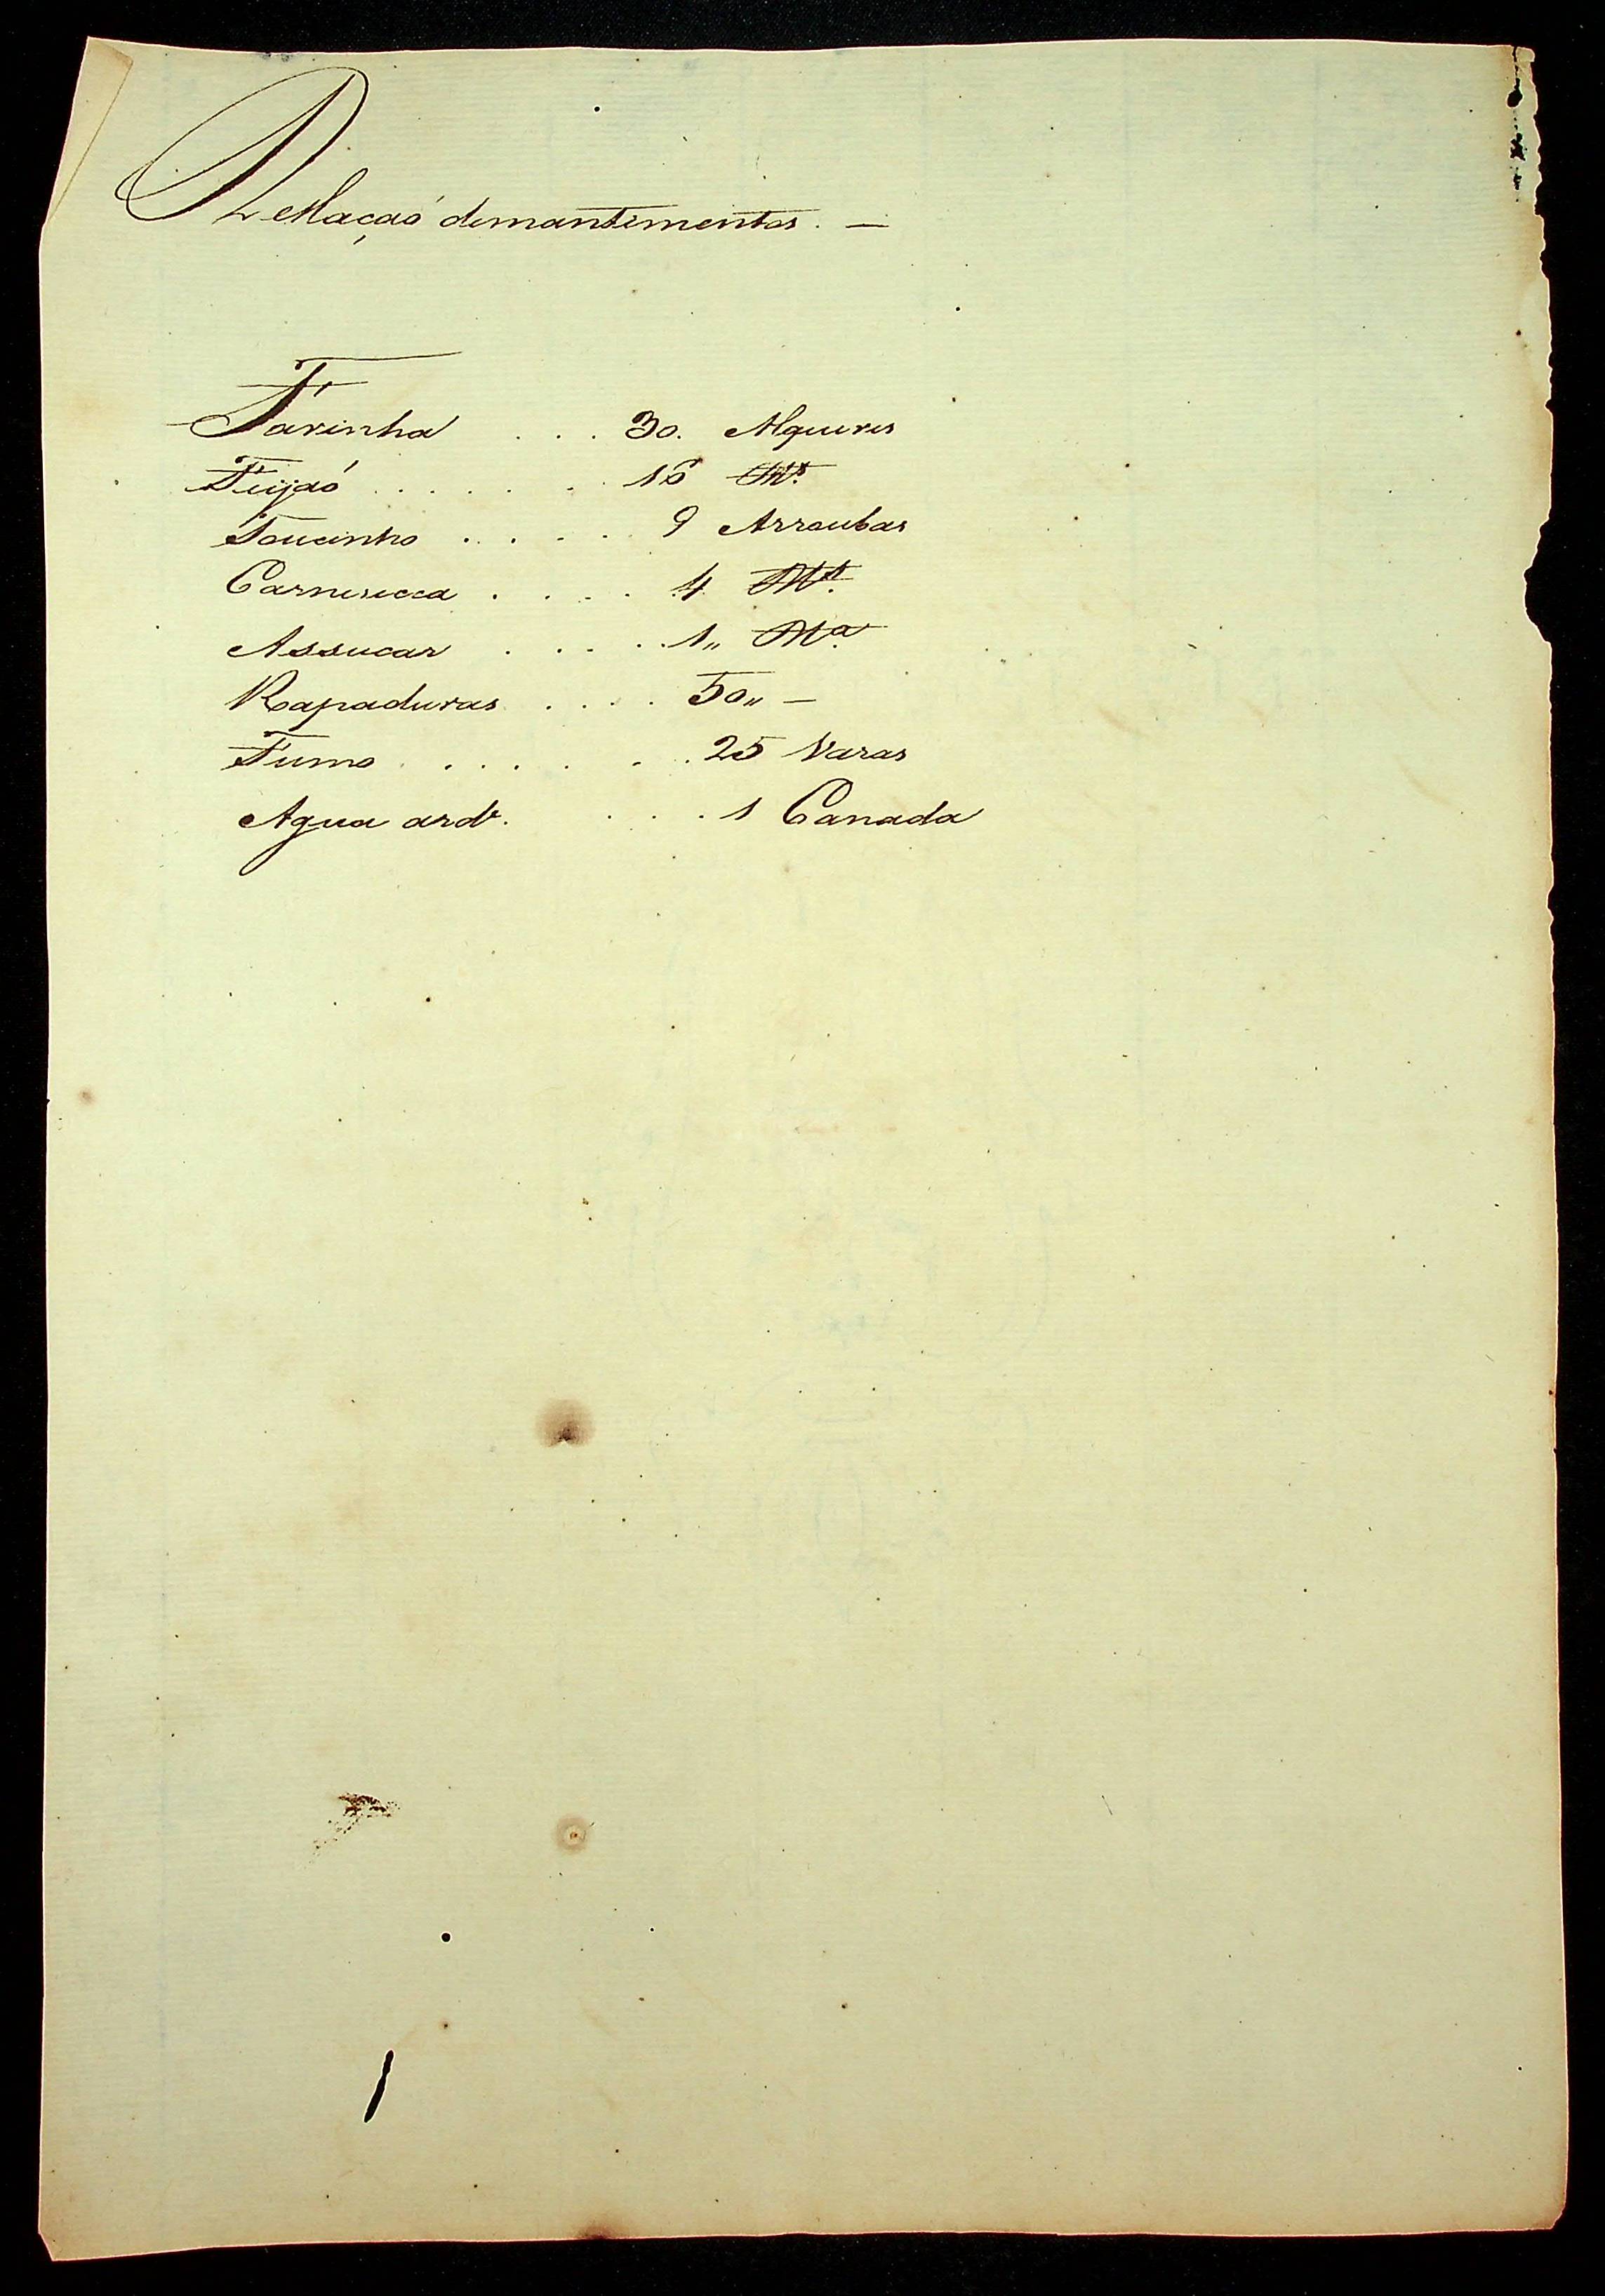 Rellaçaó demantimentos. —
Farinha . . . 30. Alqueires
Feijaó . . . . . . . 16
Toucinho . . . . . 9 Arroubas
Carnesecca . . . . 4
Assucar . . . . 1,,
Rapaduras . . . . 50,, —
Fumo . . . . . . . 25 Varas
Agua ardᵉ. . . . 1 Canada